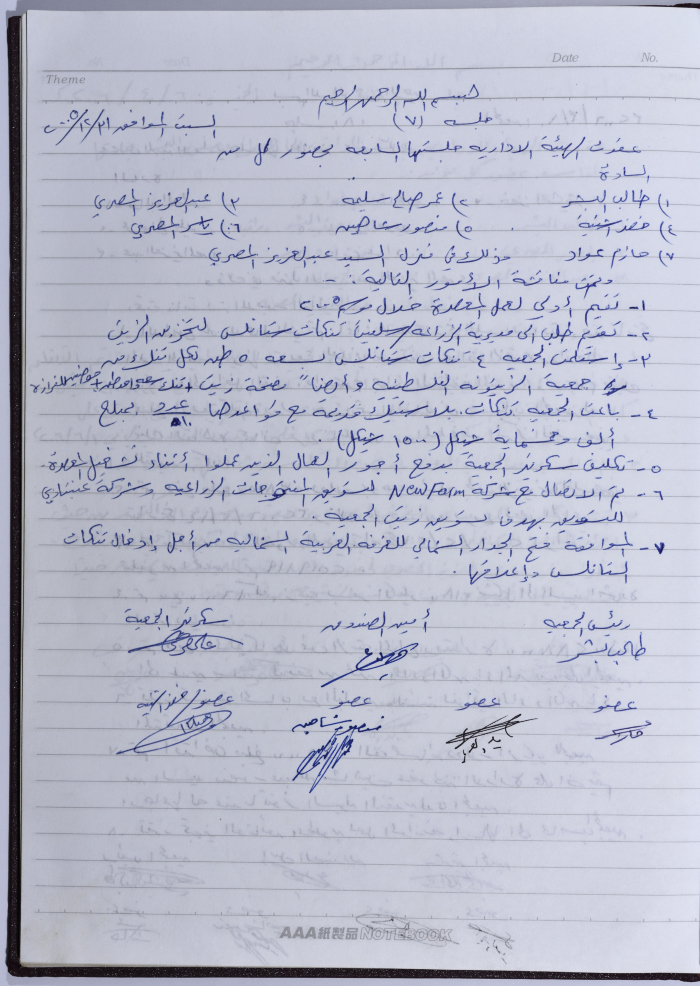 Theme Date No.
بسم الله الرحمن الرحيم
جلسة (٧) السبت الموافق ٣١/١٢/٢٠٠٥
عقدت الهيئة الادارية جلستها السابعة بحضور كل من
السادة
١) طالب البشر ٢) عمر صالح سليمه ٣) عبد العزيز المصري
٤) خضر ٥) منصور شاهين ٦) ياسر المصري
٧) حازم عواد وذلك في منزل السيد عبد العزيز المصري
وتمت مناقشة الأمور التالية: -
١- تقييم أولي لعمل المعصرة خلال موسم ٢٠٠٥
٢- تقديم طلب الى مديرية الزراعة / سلفيت تنكات ستانلس لتخزين الزيت
٣- إستلمت الجمعية ٤ تنكات ستانلس لسعة ٥ طن لكل تنك من
جمعية الزيتونه الفلسطينية وأيضاً مضخة زيت
٤- باعت الجمعية تنكات بلاستيك قديمة مع قواعدها عدد بمبلغ
ألف وخمسماية شيكل (١٥٠٠ شيكل).
٥- تكليف سكرتير الجمعية بدفع أجور العمال الذين عملوا أثناء تشغيل المعصرة.
٦- تم الاتصال مع شركة New Farm لتسويق المنتوجات الزراعيه وشركة
للتسويق بهدف تسويق زيت الجمعية.
٧- الموافقة فتح الجدار الشمالي للغرفة الغربية الشمالية من أجل إدخال تنكات
الستانلس وإغلاقها.
رئيس الجمعية أمين الصندوق سكرتير الجمعية
طالب البشر
عضو عضو عضو عضو / خضر
منصور شاهين
AAA紙製品 NOTEBOOK